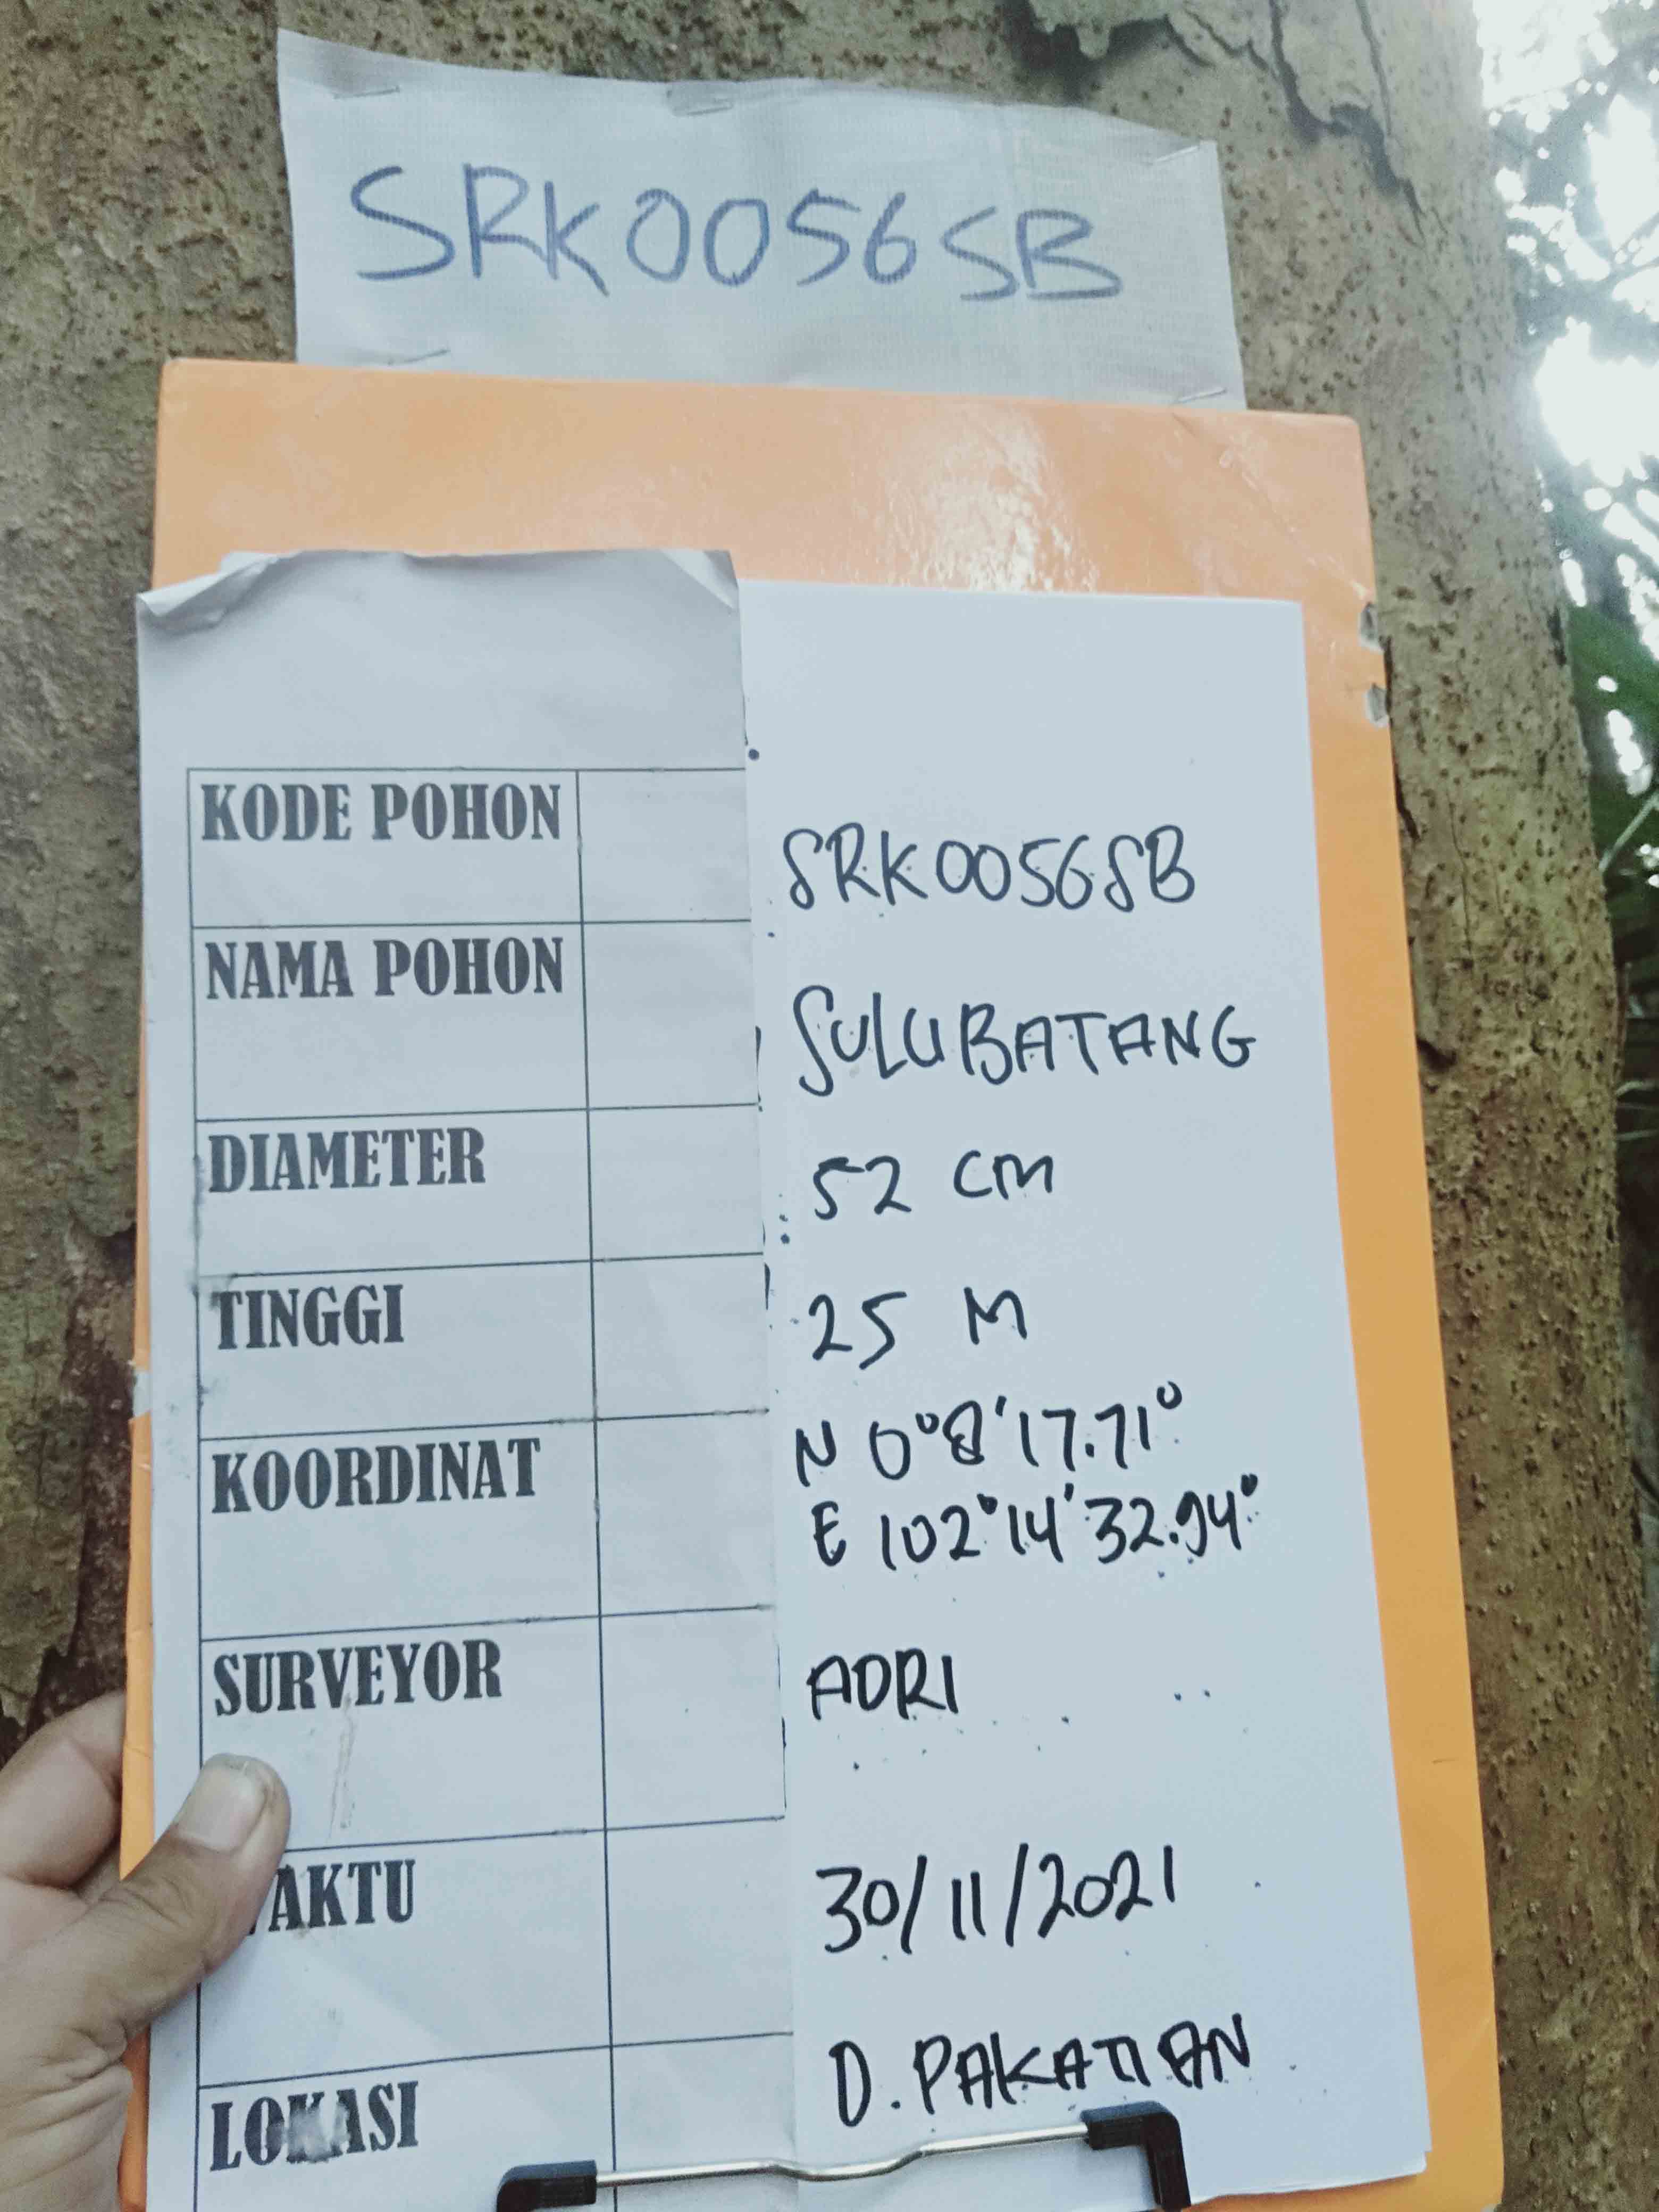 SRK0056SB
KODE POHON SRK0056SB
NAMA POHON SULUBATANG
DIAMETER 52 CM
TINGGI 25 M
KOORDINAT N 0°8'17.71°
E 102°14'32.94°
SURVEYOR ADRI
WAKTU 30/11/2021
LOKASI D. PAKATIAN